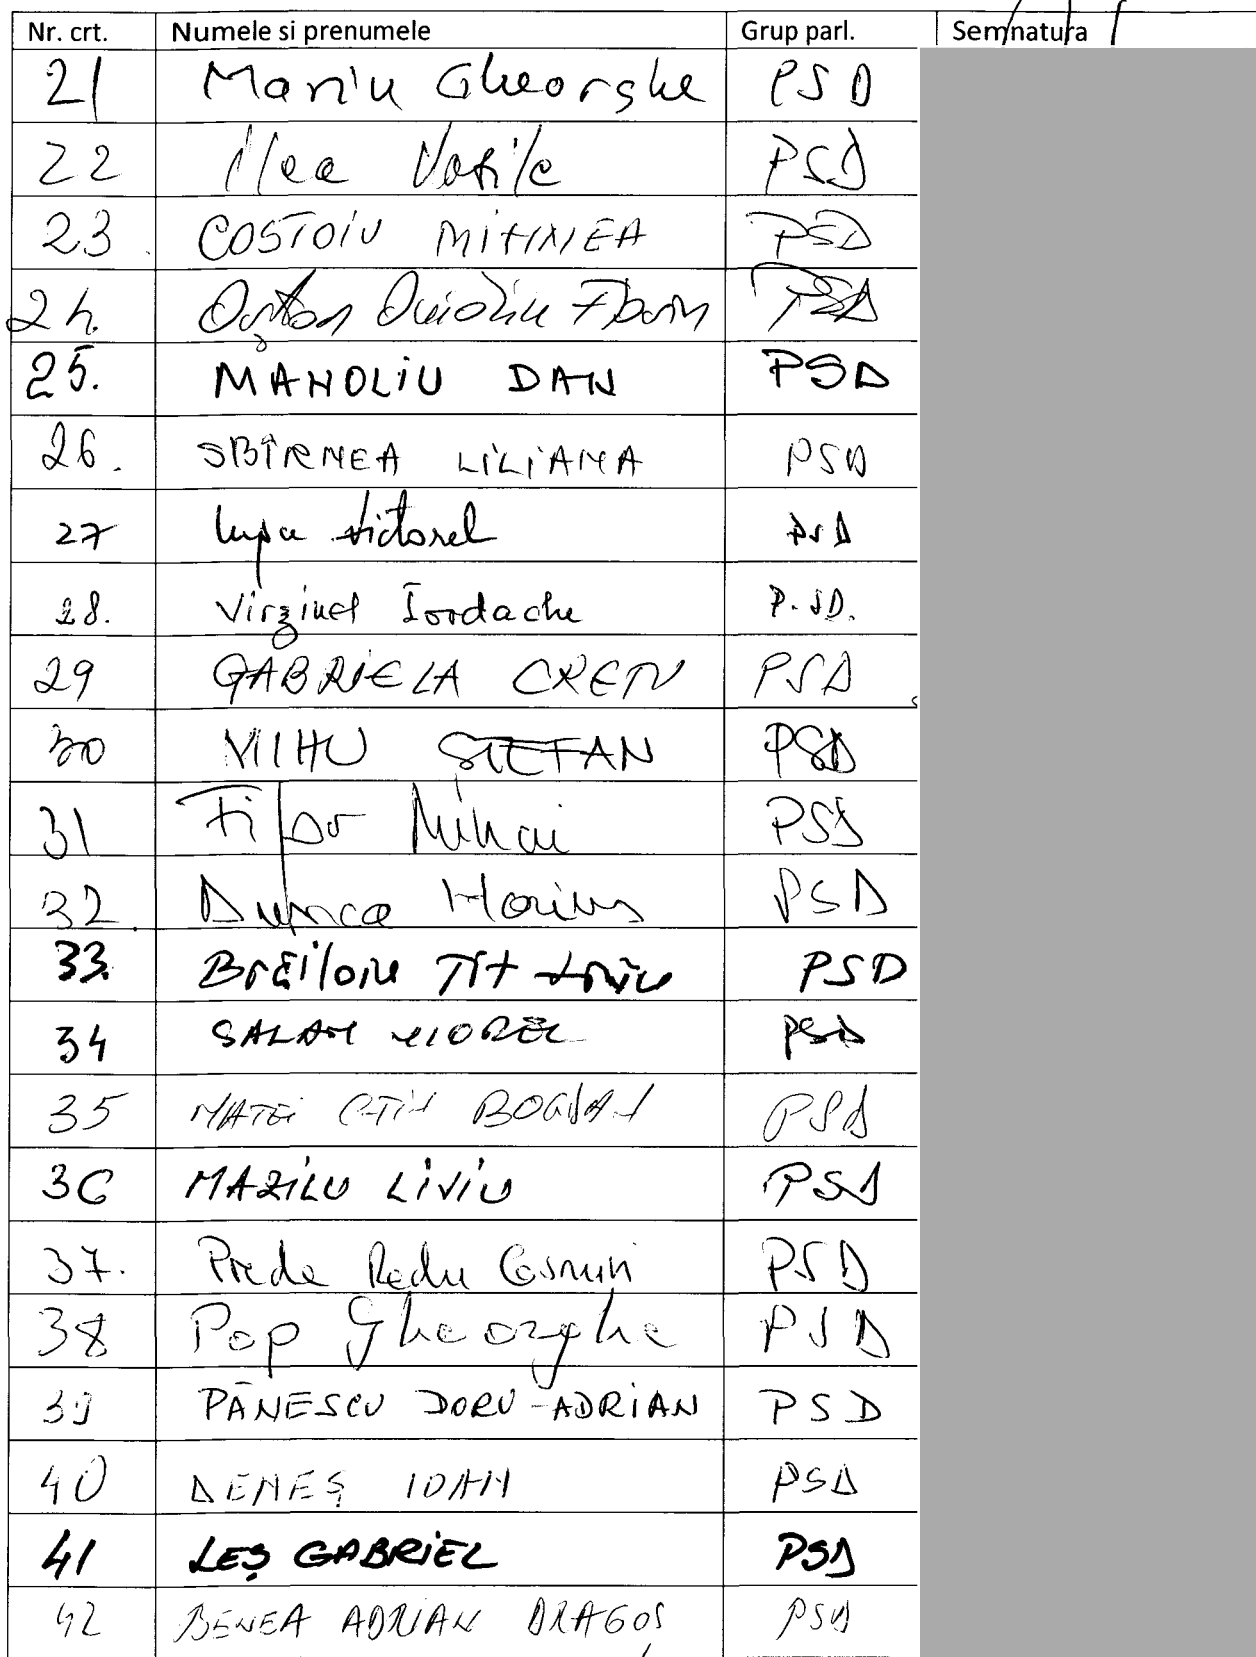 Nr. crt. Numele si prenumele Grup parl. Semnatura
21 Marin Gheorghe PSD
22 Ilea Vasile PSD
23. COSTOIU MIHNEA PSD
24. Ovidiu Florin PSD
25. MANOLIU DAN PSD
26. SBÎRNEA LILIANA PSD
27 Lupu Victorel PSD
28. Virginel Iordache P.SD.
29 GABRIELA CREȚU PSD
30 MIHU ȘTEFAN PSD
31 Fifor Mihai PSD
32. Dunca Marius PSD
33. Brăiloiu Tit Liviu PSD
34 SALAN VIOREL PSD
35 MATEI CTIN BOGDAN PSD
36 MAZILU LIVIU PSD
37. Preda Radu Cosmin PSD
38 Pop Gheorghe PSD
39 PĂNESCU DORU-ADRIAN PSD
40 DENEȘ IOAN PSD
41 LEȘ GABRIEL PSD
42 BENEA ADRIAN DRAGOȘ PSD